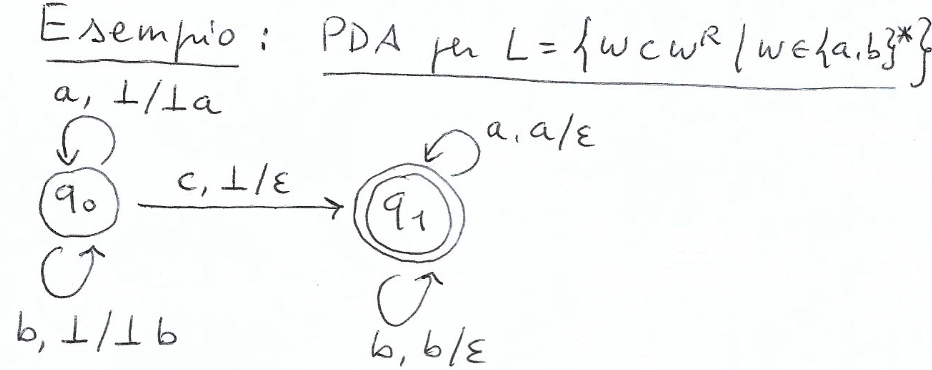 Esempio: PDA per L = {wcwᴿ | w∈{a,b}*}
a, ⊥/⊥a
a, a/ε
q₀
c, ⊥/ε
q₁
b, ⊥/⊥b
b, b/ε